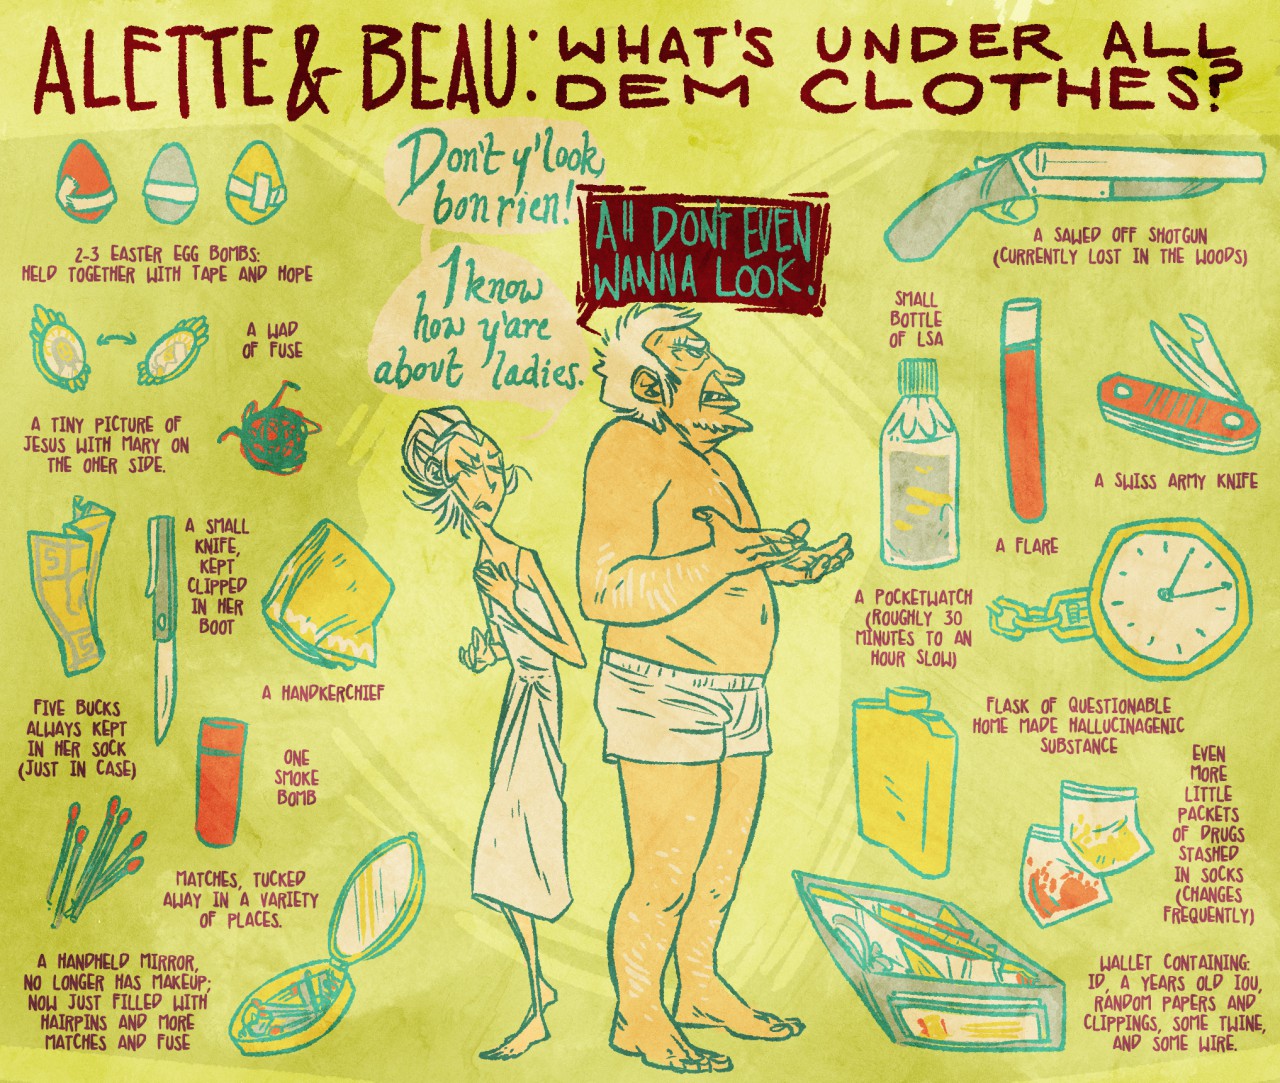 ALETTE & BEAU: WHAT'S UNDER ALL
DEM CLOTHES?
Don't y'look
bon rien!
I know
how y'are
about ladies.
AH DON'T EVEN
WANNA LOOK.
2-3 EASTER EGG BOMBS:
HELD TOGETHER WITH TAPE AND HOPE
A WAD
OF FUSE
A TINY PICTURE OF
JESUS WITH MARY ON
THE OHER SIDE.
A SMALL
KNIFE,
KEPT
CLIPPED
IN HER
BOOT
A HANDKERCHIEF
FIVE BUCKS
ALWAYS KEPT
IN HER SOCK
(JUST IN CASE)
ONE
SMOKE
BOMB
MATCHES, TUCKED
AWAY IN A VARIETY
OF PLACES.
A HANDHELD MIRROR,
NO LONGER HAS MAKEUP;
NOW JUST FILLED WITH
HAIRPINS AND MORE
MATCHES AND FUSE
A SAWED OFF SHOTGUN
(CURRENTLY LOST IN THE WOODS)
SMALL
BOTTLE
OF LSA
A SWISS ARMY KNIFE
A FLARE
A POCKETWATCH
(ROUGHLY 30
MINUTES TO AN
HOUR SLOW)
FLASK OF QUESTIONABLE
HOME MADE HALLUCINAGENIC
SUBSTANCE
EVEN
MORE
LITTLE
PACKETS
OF DRUGS
STASHED
IN SOCKS
(CHANGES
FREQUENTLY)
WALLET CONTAINING:
ID, A YEARS OLD IOU,
RANDOM PAPERS AND
CLIPPINGS, SOME TWINE,
AND SOME WIRE.